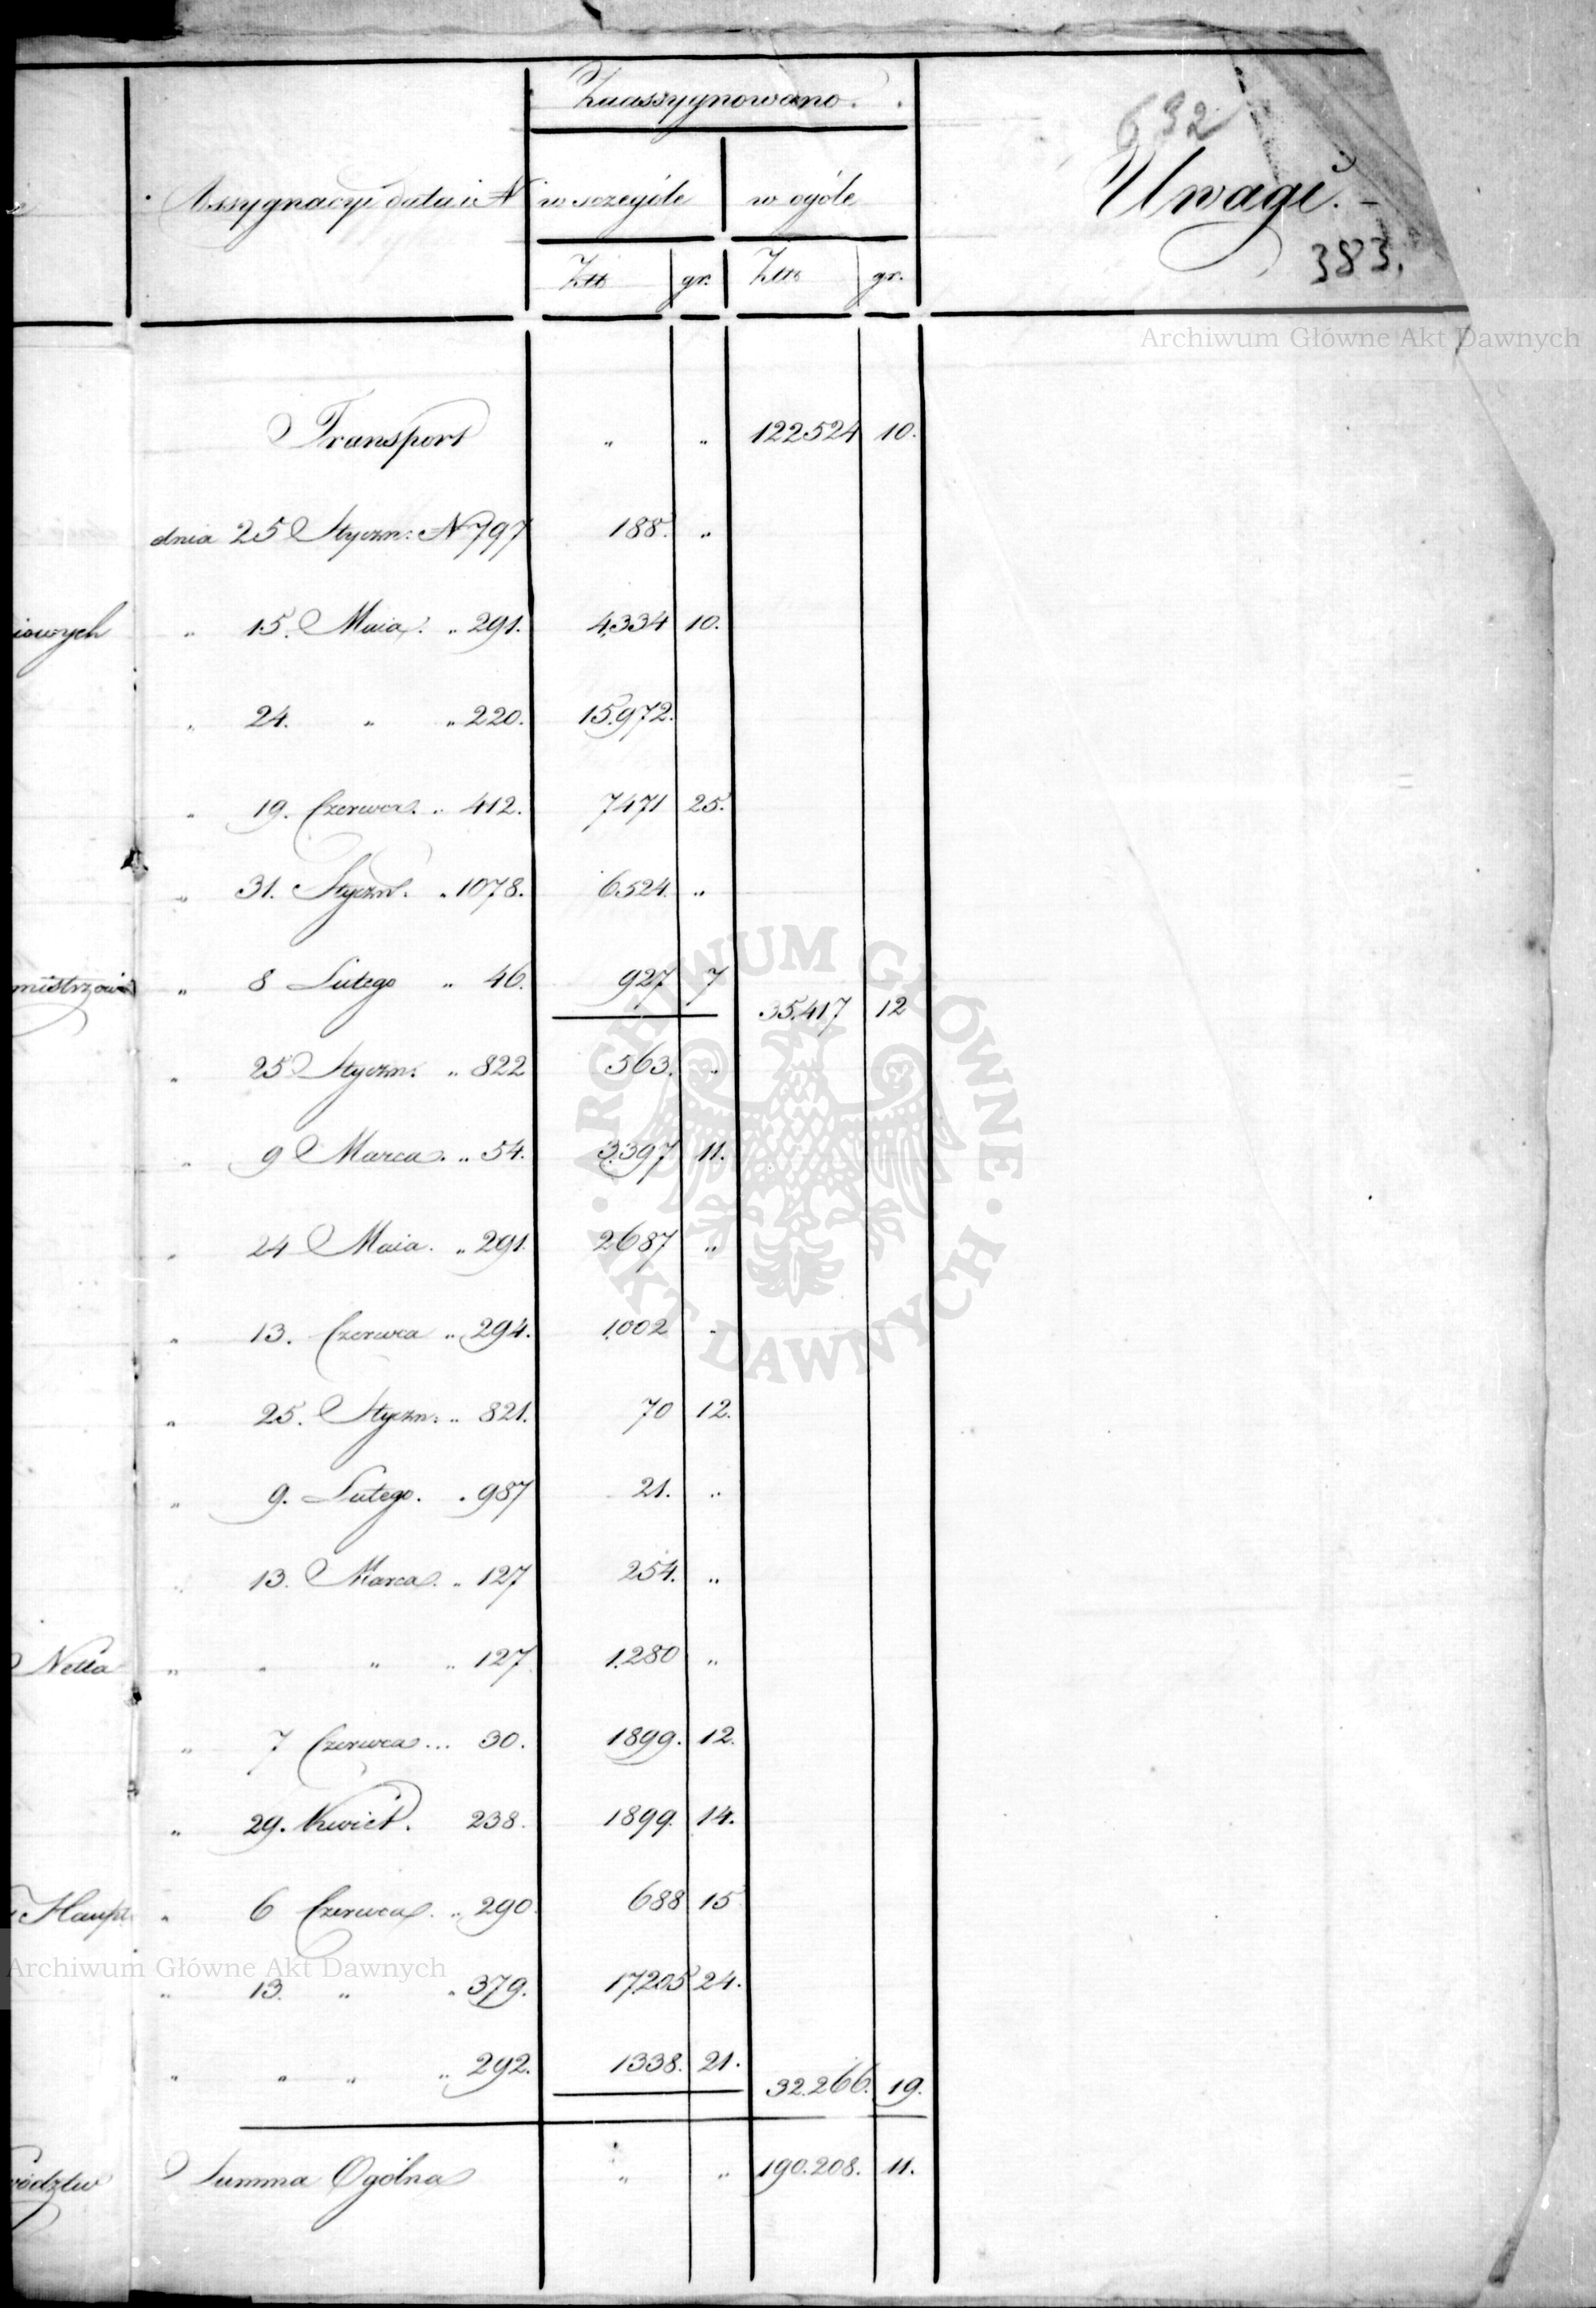 Zaassygnowano.
632
Assygnacyi data i N w szczególe w ogóle Uwagi.
383.
Ztt gr. Ztt gr.
Archiwum Główne Akt Dawnych
Transport " " 122524 10.
dnia 25 Styczn: N 797 188. "
iowych " 15. Maia. " 291. 4334 10.
" 24. " " 220. 15.972.
" 19. Czerwca. " 412. 7471 25.
" 31. Styczn. " 1078. 6.524. "
mistrzowi " 8 Lutego " 46. 927 7
35.417 12
" 25 Styczn: " 822 563. "
" 9 Marca. " 54. 3.397 11.
" 24 Maia. " 291. 2687 "
" 13. Czerwca " 294. 1.002 "
" 25. Styczn: " 821. 70 12.
" 9. Lutego. " 987 21. "
" 13. Marca. " 127 254. "
Netta " " " " 127 1.280 "
" 7 Czerwca ... 30. 1899. 12.
" 29. Kwiet. 238. 1899. 14.
Haupt " 6 Czerwca. " 290. 688 15
Archiwum Główne Akt Dawnych
" 13. " " 379. 17.205 24.
" " " " 292. 1338. 21.
32.266. 19.
wództw Summa Ogólna " " 190.208. 11.
ARCHIWUM GŁÓWNE AKT DAWNYCH